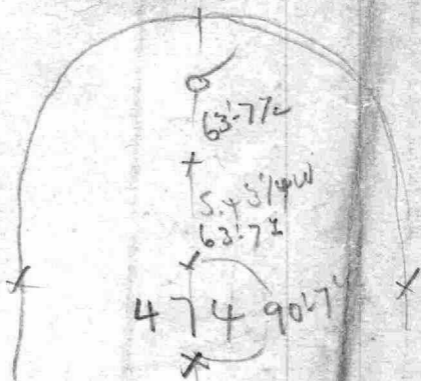 63'-7½
S.43/4W
63'-7½
474 90'-7"